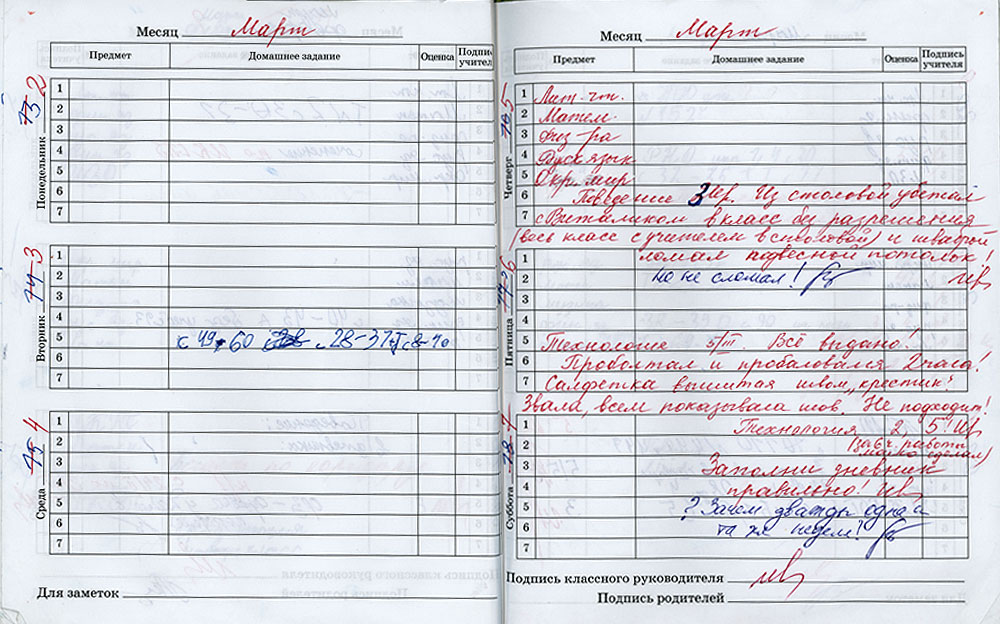 Месяц Март
Предмет Домашнее задание Оценка Подпись учителя
Понедельник 2
1
2
3
4
5
6
7
Вторник 3
1
2
3
4
5 с 49-60 28-37
6
7
Среда 4
1
2
3
4
5
6
7
Для заметок
Месяц Март
Предмет Домашнее задание Оценка Подпись учителя
Четверг 5
1 Лит-чт.
2 Матем.
3 Физ-ра
4 Русск язык
5 Окр. мир
6 Поведение 3 Ив. Из столовой убежал
7 с Виталиком в класс без разрешения
(весь класс с учителем в столовой) и шваброй
Пятница 6
1 ломал подвесной потолок!
2 Но не сломал! Ив
3
4
5 Технология 5/III. Всё выдано!
6 Проболтал и пробаловался 2 часа!
7 Салфетка вышитая швом „крестик".
Звала, всем показывала шов. Не подходит!
Суббота 7
1 Технология 2, 5! Ив
2 работы
мало сделал)
3 Заполни дневник
4 правильно! Ив
5 ? Зачем дважды одна и
6 та же неделя?
7
Подпись классного руководителя Ив
Подпись родителей